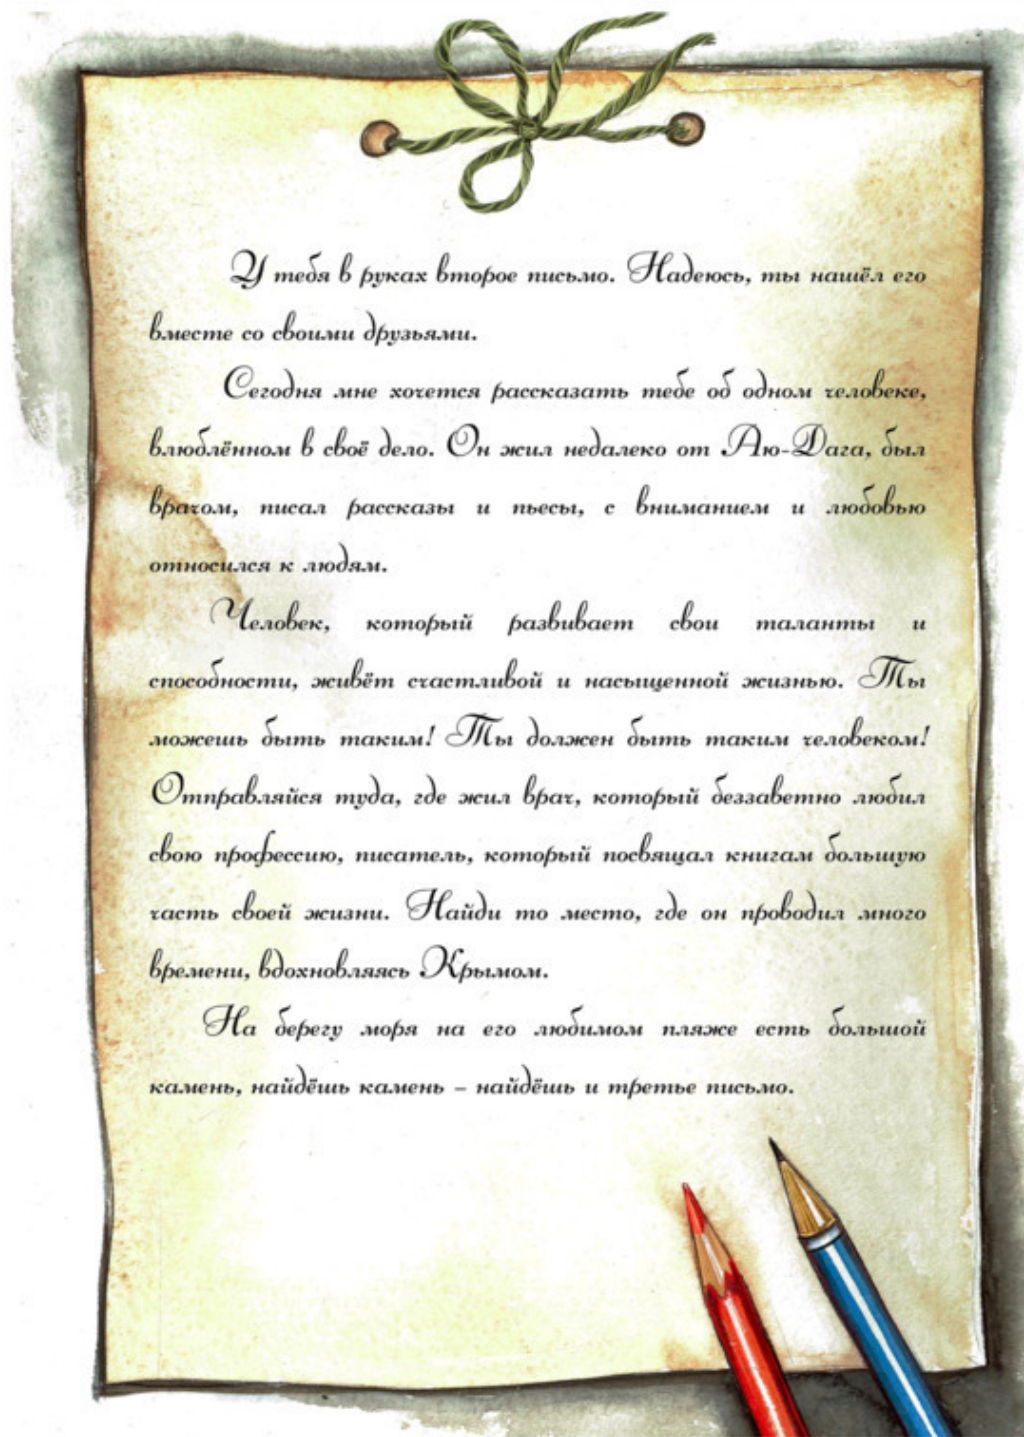 У тебя в руках второе письмо. Надеюсь, ты нашёл его
вместе со своими друзьями.
Сегодня мне хочется рассказать тебе об одном человеке,
влюблённом в своё дело. Он жил недалеко от Аю-Дага, был
врачом, писал рассказы и пьесы, с вниманием и любовью
относился к людям.
Человек, который развивает свои таланты и
способности, живёт счастливой и насыщенной жизнью. Ты
можешь быть таким! Ты должен быть таким человеком!
Отправляйся туда, где жил врач, который беззаветно любил
свою профессию, писатель, который посвящал книгам большую
часть своей жизни. Найди то место, где он проводил много
времени, вдохновляясь Крымом.
На берегу моря на его любимом пляже есть большой
камень, найдёшь камень – найдёшь и третье письмо.